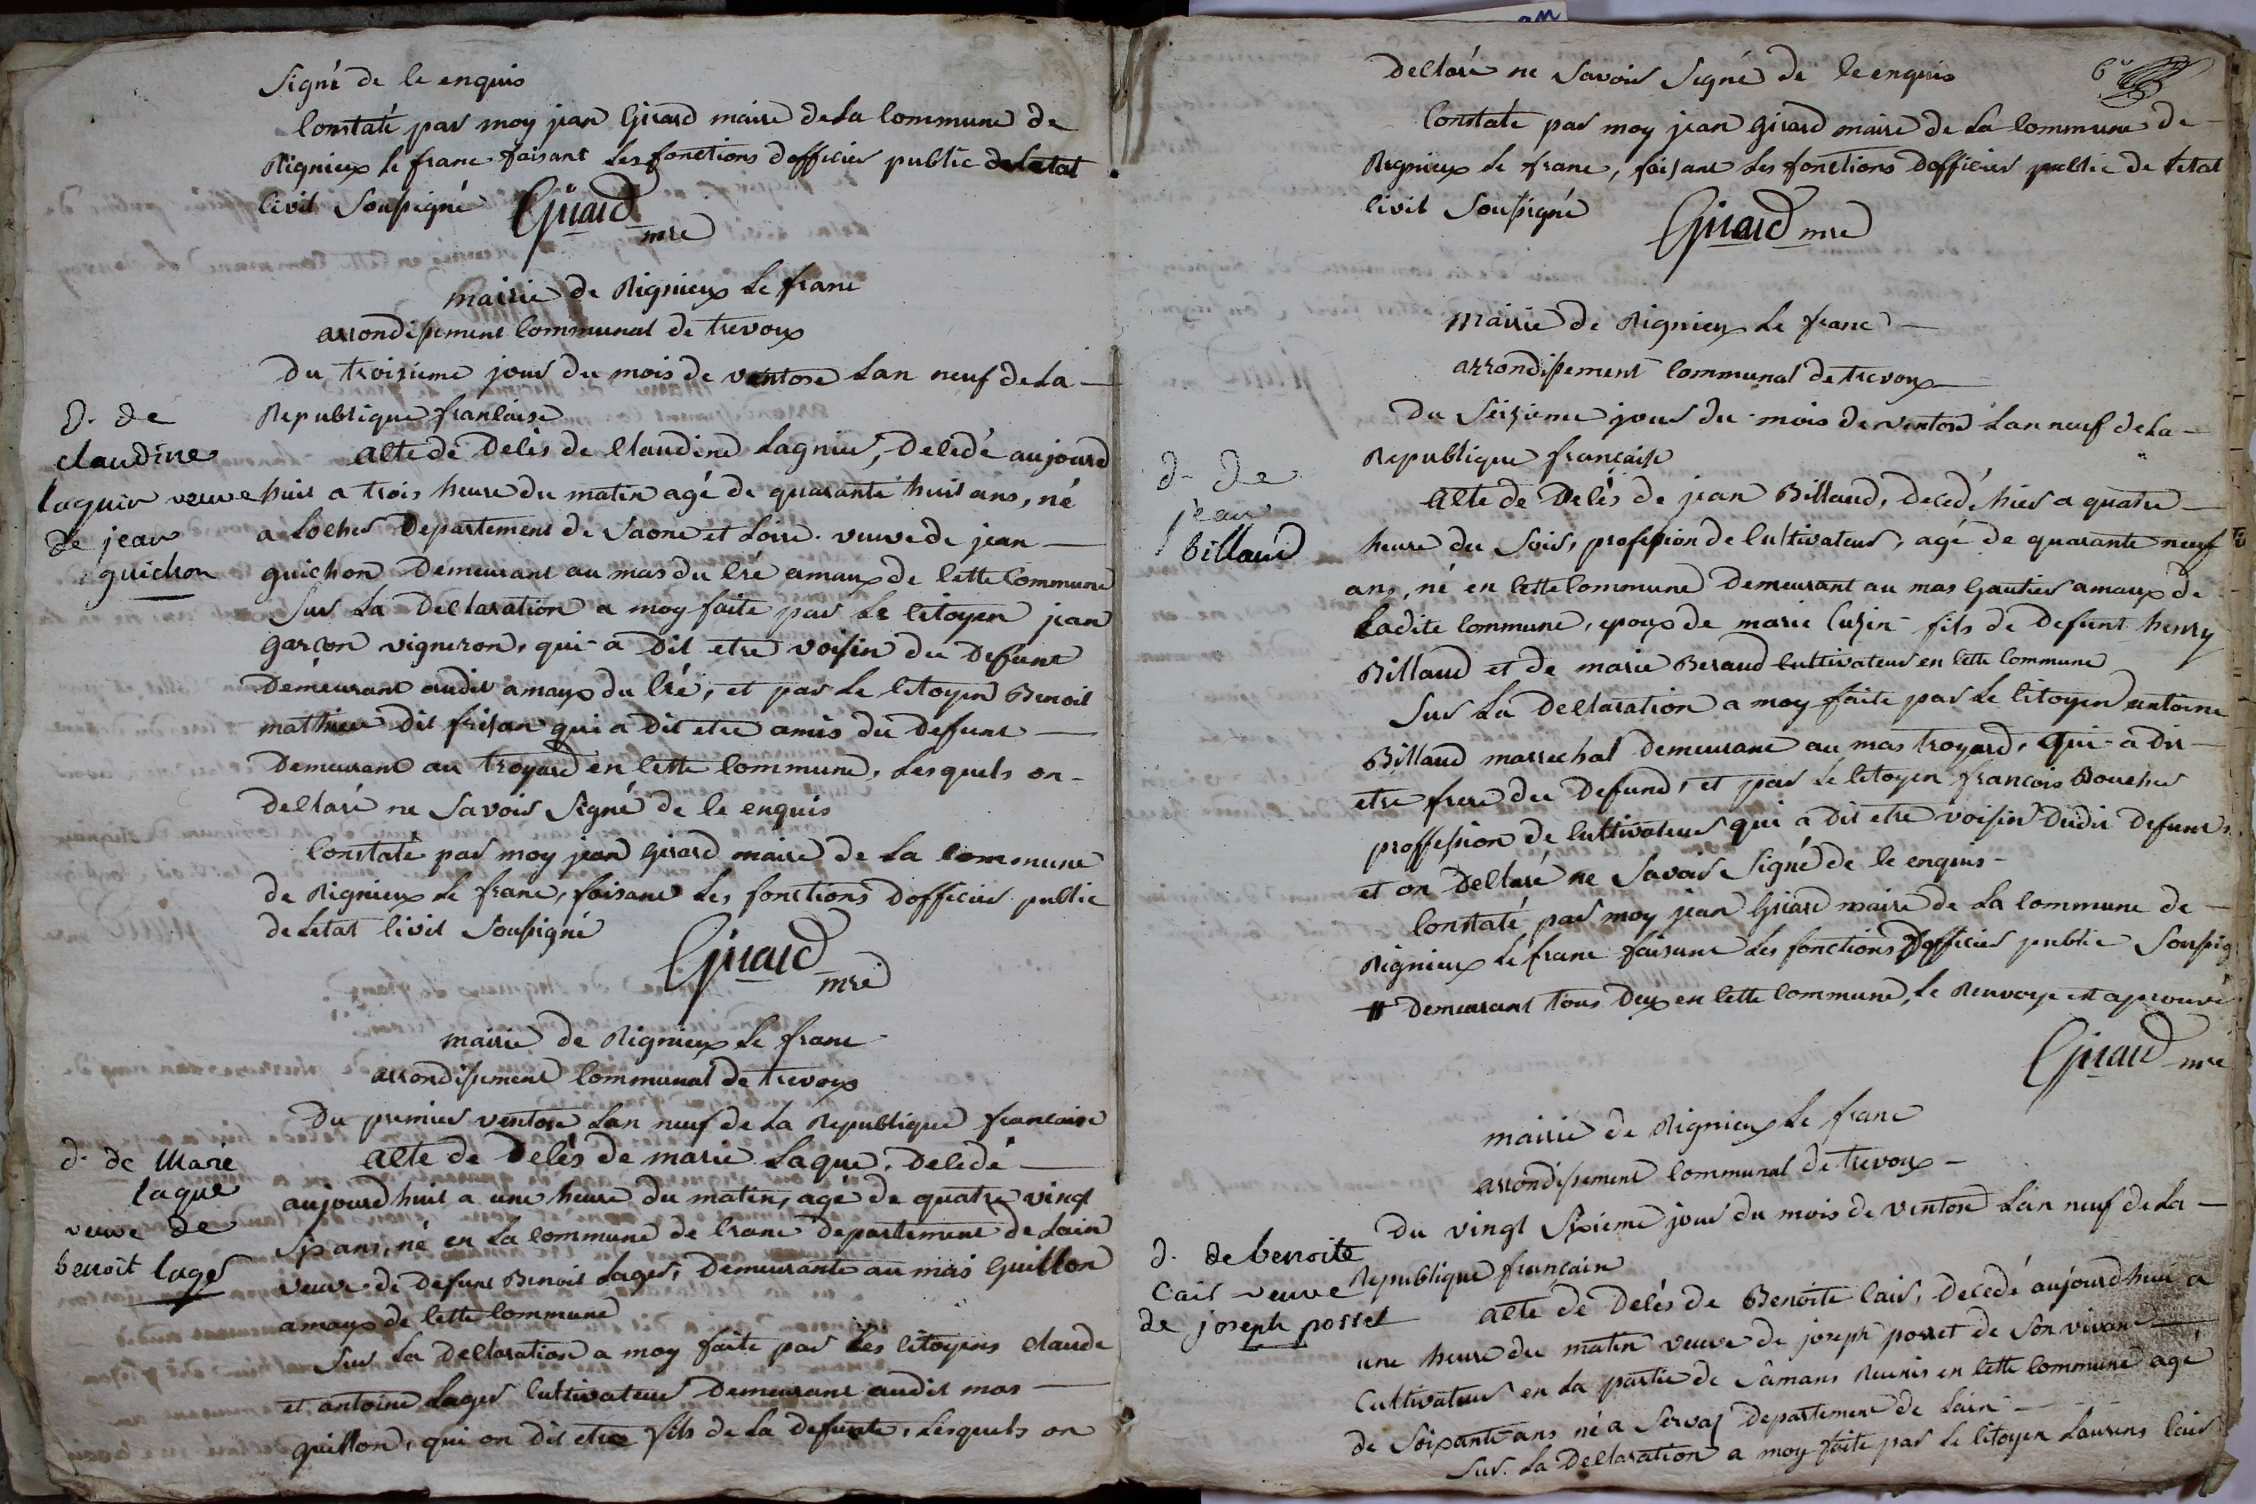 Signé de le enquis
Constaté par moy jean Girard maire de la Commune de
Rignieux le franc faisant les fonctions dofficier public de letat
Civil Soussigné Girard
mre
mairie de Rignieux le franc
arrondissement Communal de trevoux
Du troisieme jour du mois de ventose Lan neuf de La
Republique francaise
d. de
claudine
laguin veuve
de jean
guichon
acte de Décès de Claudine Lagnier, Décédé aujourd
huit a trois heure du matin agé de quarante huit ans, né
a Loches Departement de Saone et Loire. veuve de jean
guichon Demeurant au mas du Cré amaux de Cette Commune
Sur La Declaration a moy faite par Le Citoyen jean
garcon vigneron, qui a Dit etre voisin du Defunt
Démeurant audit amaux du Cré, et par Le Citoyen Benoit
mathieu Dit frisan qui a Dit etre amis du Defunt
Demeurant au troyard en Cette Commune, Lesquels on
Declaré ne Savoir Signé de le enquis
Constaté par moy jean Girard maire de La commune
de Rignieux Le franc, faisant Les fonctions Dofficier public
de Letat Civil Soussigné
Girard
mre
mairie de Rignieux Le franc
arrondissement Communal de trevoux
Du premier ventose Lan neuf de La Republique francaise
d. de Marie
laque
veuve de
benoit lager
acte de Décès de marie Laque, Décédé
aujourdhuit a une heure du matin, agé de quatre vingt
Six ans, né en La Commune de Crane Departement de Lain
veuve de Defunt Benoit Lager, Demeurante au mas Guillon
amaux de Cette Commune
Sur La Declaration a moy faite par Les Citoyens claude
et antoine Lager Cultivateur Demeurant audit mas
guillon, qui on Dit etre fils de La Defunte, Lesquels on
6e
Declaré ne Savoir Signé de le enquis
Constaté par moy jean Girard maire de La Commune de
Rignieux Le franc, faisant Les fonctions Dofficier public de Letat
Civil Soussigné
Girard mre
mairie de Rignieux Le franc
arrondissement Communal de trevoux
Du Seizieme jour du mois de ventose Lan neuf de La
Republique francaise
d. de
jean
billaud
acte de Décès de jean Billaud, Decedé hier a quatre
heure du Soir, profession de Cultivateur, agé de quarante neuf
ans, né en Cette Commune Demeurant au mas Gautier amaux de
Ladite Commune, epoux de marie Cuzin fils de Defunt henry
Billaud et de marie Beraud Cultivateur en Cette Commune
Sur La Declaration a moy faite par Le Citoyen antoine
Billaud marrechal Demeurant au mas troyard, qui a Dit
etre frere du Defund, et par Le Citoyen francois Boucher
proffession de Cultivateur qui a Dit etre voisin Dudit Defunt
et on Declaré ne Savoir Signé de le enquis
Constaté par moy jean Girard maire de La Commune de
Rignieux Le franc faisant Les fonctions Dofficier public Soussig
# Demeurant tous Deux en Cette Commune, Le Renvoye est aprouvé
Girard mre
mairie de Rignieux Le franc
arrondissement Communal de trevoux
Du vingt Sixieme jour du mois de ventose Lan neuf de La
Republique francaise
d. de benoite
Cair veuve
de joseph posset
acte de Décès de Benoite Cair, Decedé aujourdhui a
une heure du matin veuve de joseph posset de Son vivant
Cultivateur en La partie de Samans Reunis en Cette Commune agé
de Soixante ans né a Servas Departement de Lain
Sur La Declaration a moy faite par Le Citoyen Laurens Cair